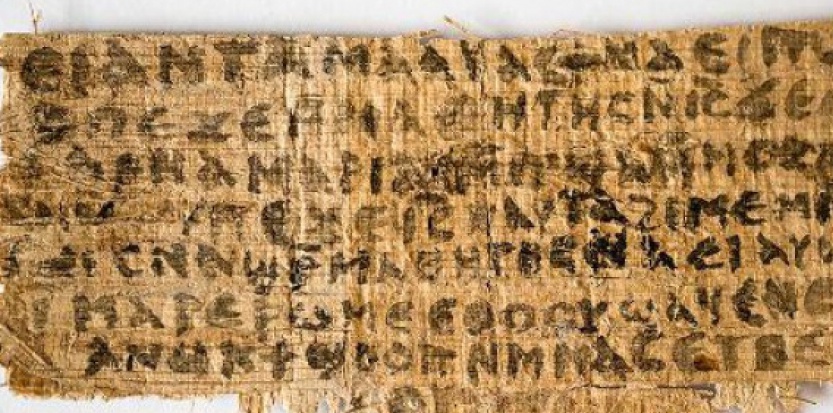 ⲉⲓ ⲁⲛ ⲧⲁⲙⲁⲁⲩ ⲁⲥϯ ⲛⲁⲉⲓ ⲡ
ⲡⲉϫⲉ ⲙⲙⲁⲑⲏⲧⲏⲥ ⲛⲓⲥ ϫⲉ
ⲁⲣⲛⲁ ⲙⲁⲣⲓϩⲁⲙ ⲙⲡϣⲁ ⲙⲙⲟⲥ ⲁ
ⲡⲉϫⲉ ⲓⲥ ⲛⲁⲩ ⲧⲁϩⲓⲙⲉ ⲙⲛ
ⲥⲛⲁϣⲣ ⲙⲁⲑⲏⲧⲏⲥ ⲛⲁⲉⲓ ⲁⲩⲱ
ⲓ ⲙⲁⲣⲉ ⲣⲱⲙⲉ ⲉⲑⲟⲟⲩ ϣⲁϥⲉ ⲛⲉ
ⲁⲛⲟⲕ ϯϣⲟⲟⲡ ⲛⲙⲙⲁⲥ ⲉⲧⲃⲉ